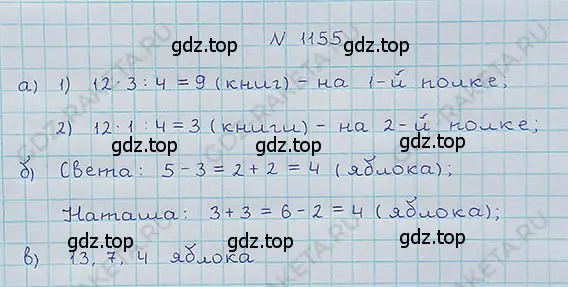 N 1155
gdz.top gdz.top
а) 1) 12·3:4=9 (книг) – на 1-й полке;
gdz.top gdz.top
2) 12·1:4=3 (книги) – на 2-й полке;
gdz.top gdz.top
б) Света: 5-3=2+2=4 (яблока);
gdz.top gdz.top
Наташа: 3+3=6-2=4 (яблока);
gdz.top gdz.top
в) 13, 7, 4 яблока